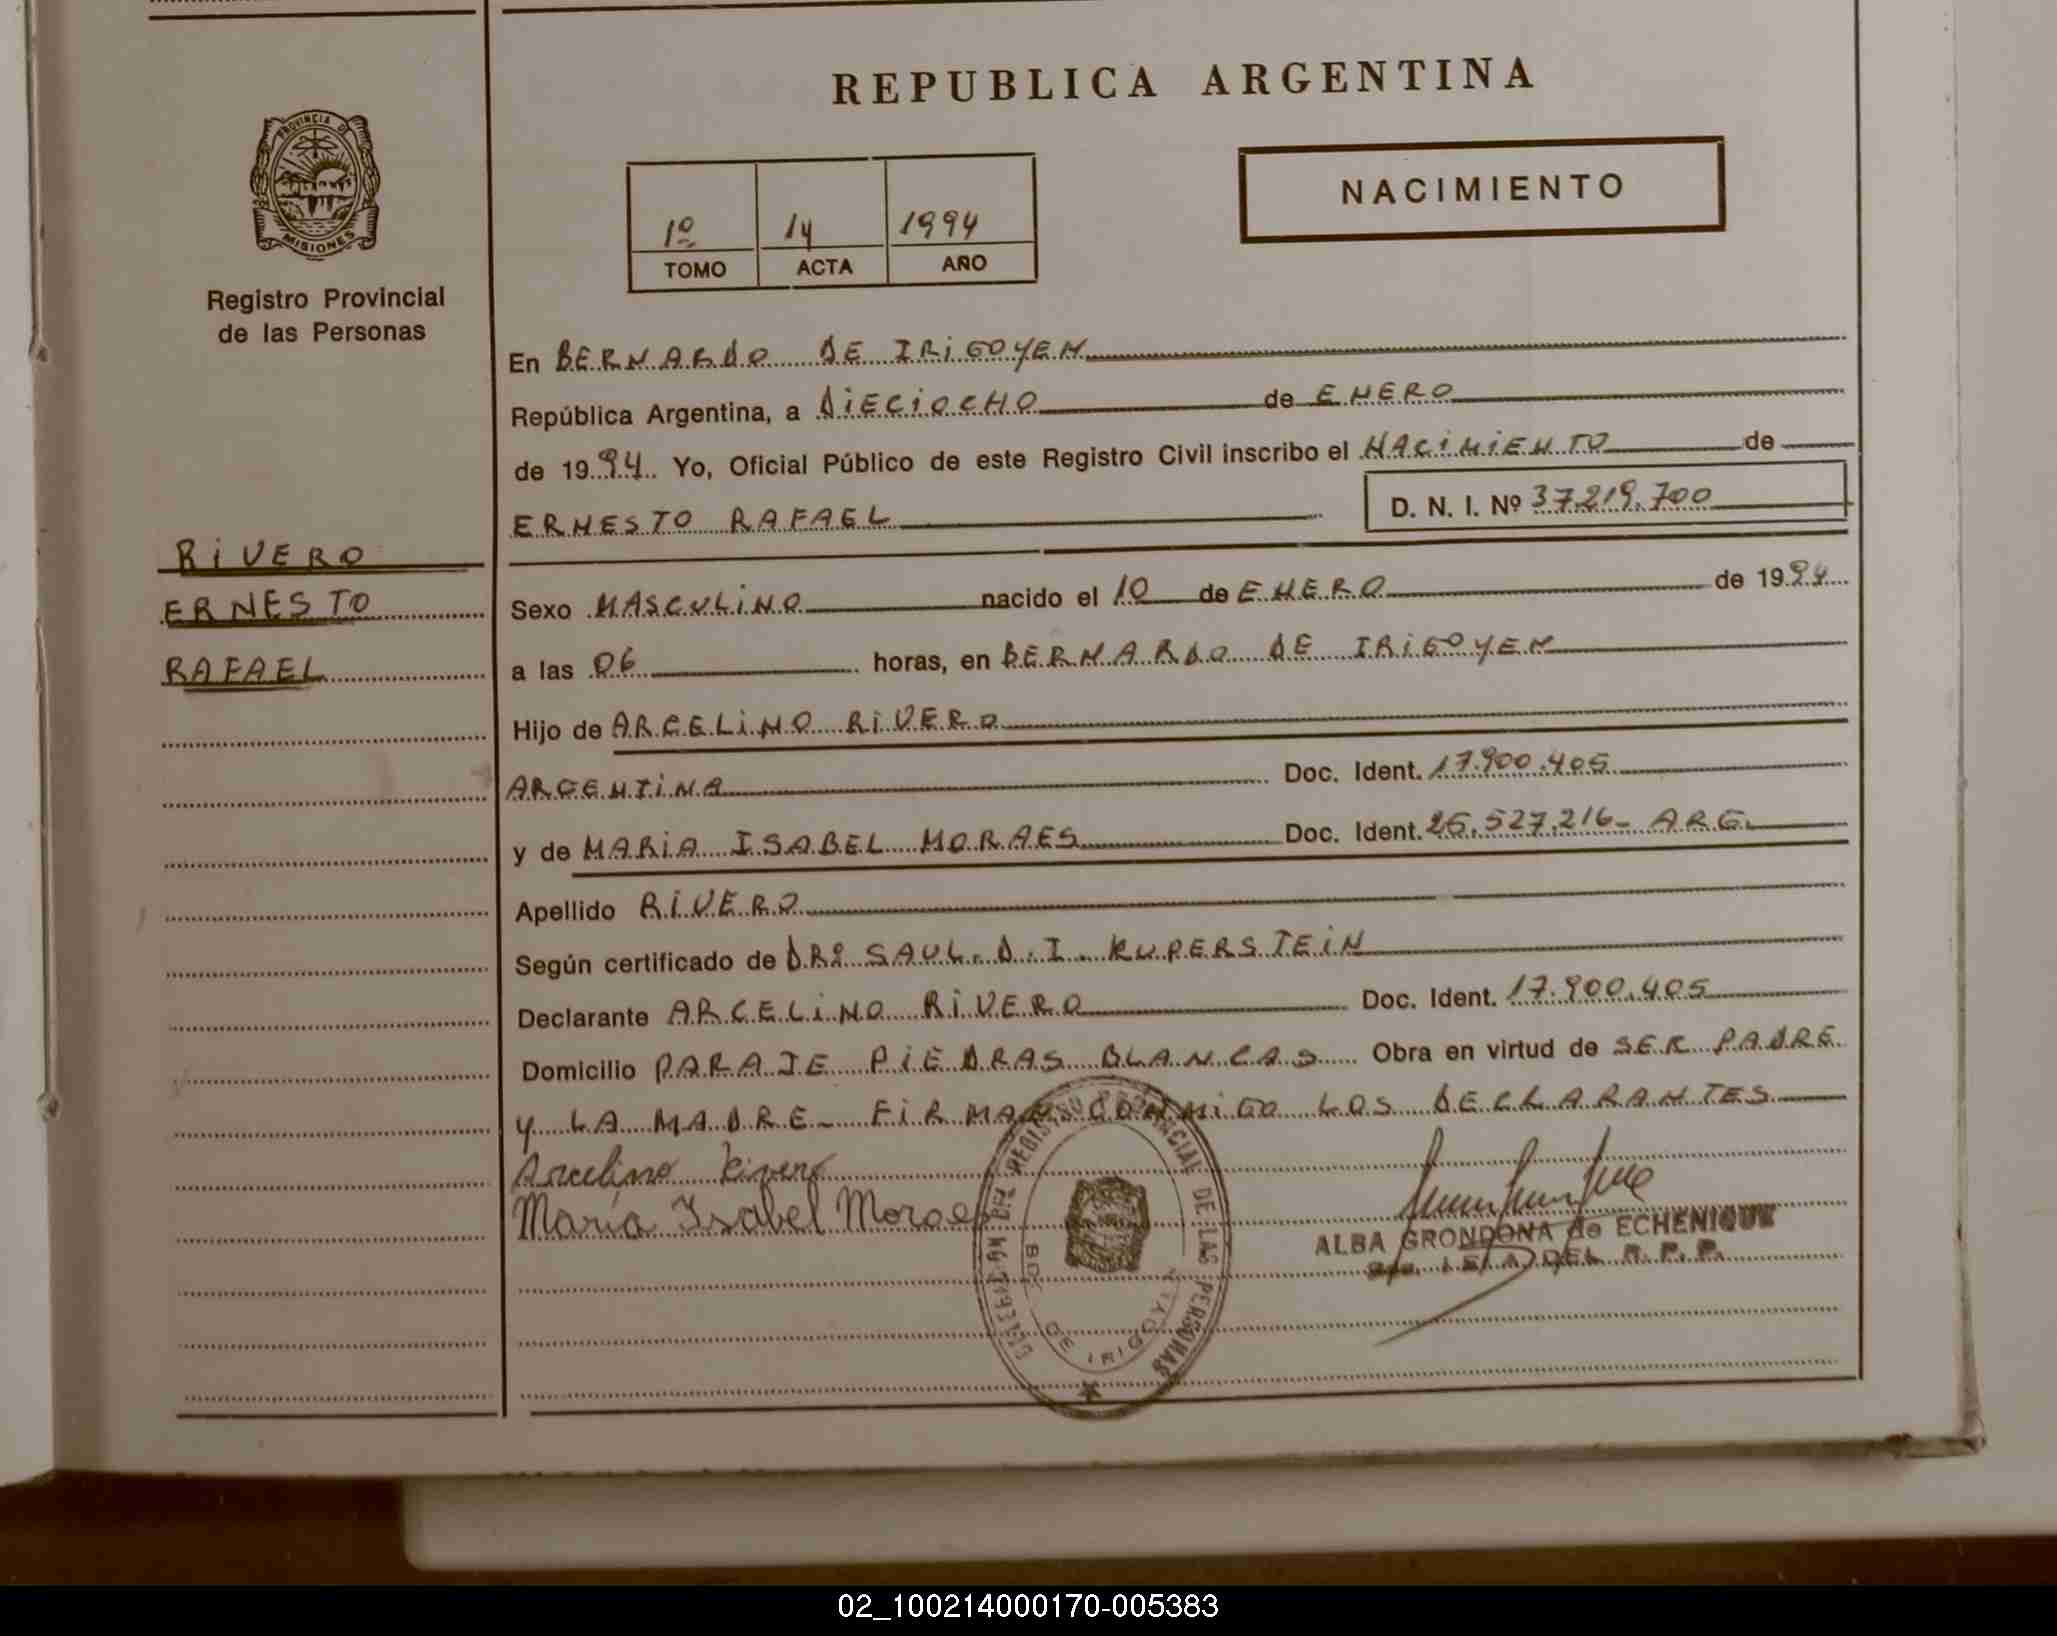 REPUBLICA ARGENTINA
PROVINCIA DE
MISIONES
Registro Provincial
de las Personas
NACIMIENTO
1º 14 1994
TOMO ACTA AÑO
En BERNARDO DE IRIGOYEN
República Argentina, a DIECIOCHO de ENERO
de 1994. Yo, Oficial Público de este Registro Civil inscribo el NACIMIENTO de
ERNESTO RAFAEL D. N. I. Nº 37.219.700
RIVERO
ERNESTO
RAFAEL
Sexo MASCULINO nacido el 10 de ENERO de 1994
a las 06 horas, en BERNARDO DE IRIGOYEN
Hijo de ARCELINO RIVERO
ARGENTINA Doc. Ident. 17.900.405
y de MARIA ISABEL MORAES Doc. Ident. 26.527.216- ARG.
Apellido RIVERO
Según certificado de DR: SAUL. D. I. KUPERSTEIN
Declarante ARCELINO RIVERO Doc. Ident. 17.900.405
Domicilio PARAJE PIEDRAS BLANCAS Obra en virtud de SER PADRE
Y LA MADRE- FIRMAN CONMIGO LOS DECLARANTES
Arcelino Rivero
Maria Isabel Moraes
REGISTRO PROVINCIAL DE LAS PERSONAS
BDO. DE IRIGOYEN
ALBA GRONDONA de ECHENIQUE
DEL R. P. P.
02_100214000170-005383